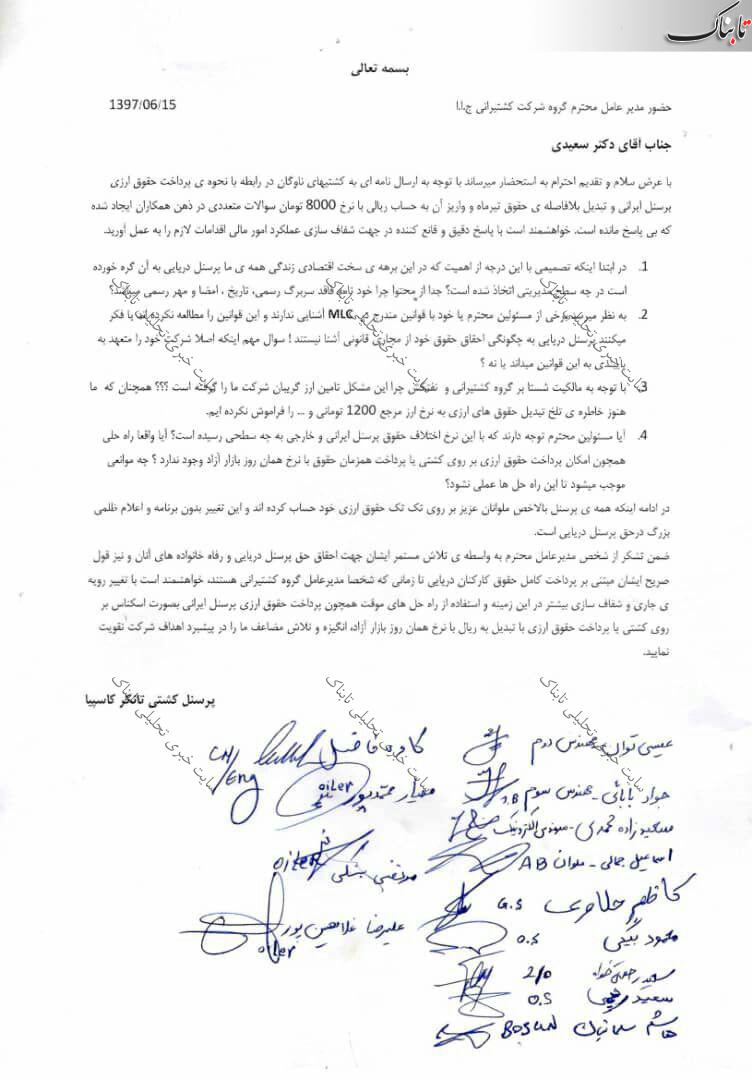 تابناک
بسمه تعالی
حضور مدیر عامل محترم گروه شرکت کشتیرانی ج.ا.ا
1397/06/15
جناب آقای دکتر سعیدی
با عرض سلام و تقدیم احترام به استحضار میرساند با توجه به ارسال نامه ای به کشتیهای ناوگان در رابطه با نحوه ی پرداخت حقوق ارزی
پرسنل ایرانی و تبدیل بلافاصله ی حقوق تیرماه و واریز آن به حساب ریالی با نرخ 8000 تومان سوالات متعددی در ذهن همکاران ایجاد شده
که بی پاسخ مانده است. خواهشمند است با پاسخ دقیق و قانع کننده در جهت شفاف سازی عملکرد امور مالی اقدامات لازم را به عمل آورید.
1. در ابتدا اینکه تصمیمی با این درجه از اهمیت که در این برهه ی سخت اقتصادی زندگی همه ی ما پرسنل دریایی به آن گره خورده
است در چه سطح مدیریتی اتخاذ شده است؟ جدا از محتوا چرا خود نامه فاقد سربرگ رسمی، تاریخ ، امضا و مهر رسمی میباشد؟
2. به نظر میرسد برخی از مسئولین محترم یا خود با قوانین مندرج در MLC آشنایی ندارند و این قوانین را مطالعه نکرده اند یا فکر
میکنند پرسنل دریایی به چگونگی احقاق حقوق خود از مجاری قانونی آشنا نیستند ! سوال مهم اینکه اصلا شرکت خود را متعهد به
پایبندی به این قوانین میداند یا نه ؟
3. با توجه به مالکیت شستا بر گروه کشتیرانی و نفتکش چرا این مشکل تامین ارز گریبان شرکت ما را گرفته است ؟؟؟ همچنان که ما
هنوز خاطره ی تلخ تبدیل حقوق های ارزی به نرخ ارز مرجع 1200 تومانی و ... را فراموش نکرده ایم.
4. آیا مسئولین محترم توجه دارند که با این نرخ اختلاف حقوق پرسنل ایرانی و خارجی به چه سطحی رسیده است؟ آیا واقعا راه حلی
همچون امکان پرداخت حقوق ارزی بر روی کشتی یا پرداخت همزمان حقوق با نرخ همان روز بازار آزاد وجود ندارد ؟ چه موانعی
موجب میشود تا این راه حل ها عملی نشود؟
در ادامه اینکه همه ی پرسنل بالاخص ملوانان عزیز بر روی تک تک حقوق ارزی خود حساب کرده اند و این تغییر بدون برنامه و اعلام ظلمی
بزرگ درحق پرسنل دریایی است.
ضمن تشکر از شخص مدیرعامل محترم به واسطه ی تلاش مستمر ایشان جهت احقاق حق پرسنل دریایی و رفاه خانواده های آنان و نیز قول
صریح ایشان مبتنی بر پرداخت کامل حقوق کارکنان دریایی تا زمانی که شخصا مدیرعامل گروه کشتیرانی هستند، خواهشمند است با تغییر رویه
ی جاری و شفاف سازی بیشتر در این زمینه و استفاده از راه حل های موقت همچون پرداخت حقوق ارزی پرسنل ایرانی بصورت اسکناس بر
روی کشتی یا پرداخت حقوق ارزی با تبدیل به ریال با نرخ همان روز بازار آزاد، انگیزه و تلاش مضاعف ما را در پیشبرد اهداف شرکت تقویت
نمایید.
پرسنل کشتی تانکر کاسپیا
سایت خبری تحلیلی تابناک
سایت خبری تحلیلی تابناک
سایت خبری تحلیلی تابناک
سایت خبری تحلیلی تابناک
سایت خبری تحلیلی تابناک
سایت خبری تحلیلی تابناک
عیسی مهندس دوم
CH/Eng
جواد بابائی - مهندس سوم
oiler
اسماعیل جمالی - ملوان AB
مرتضی oiler
کاظم G.S
علیرضا غلامحسین پور oiler
محمود بیگی O.S
سعید 2/0
سعید O.S
هاشم Bosun